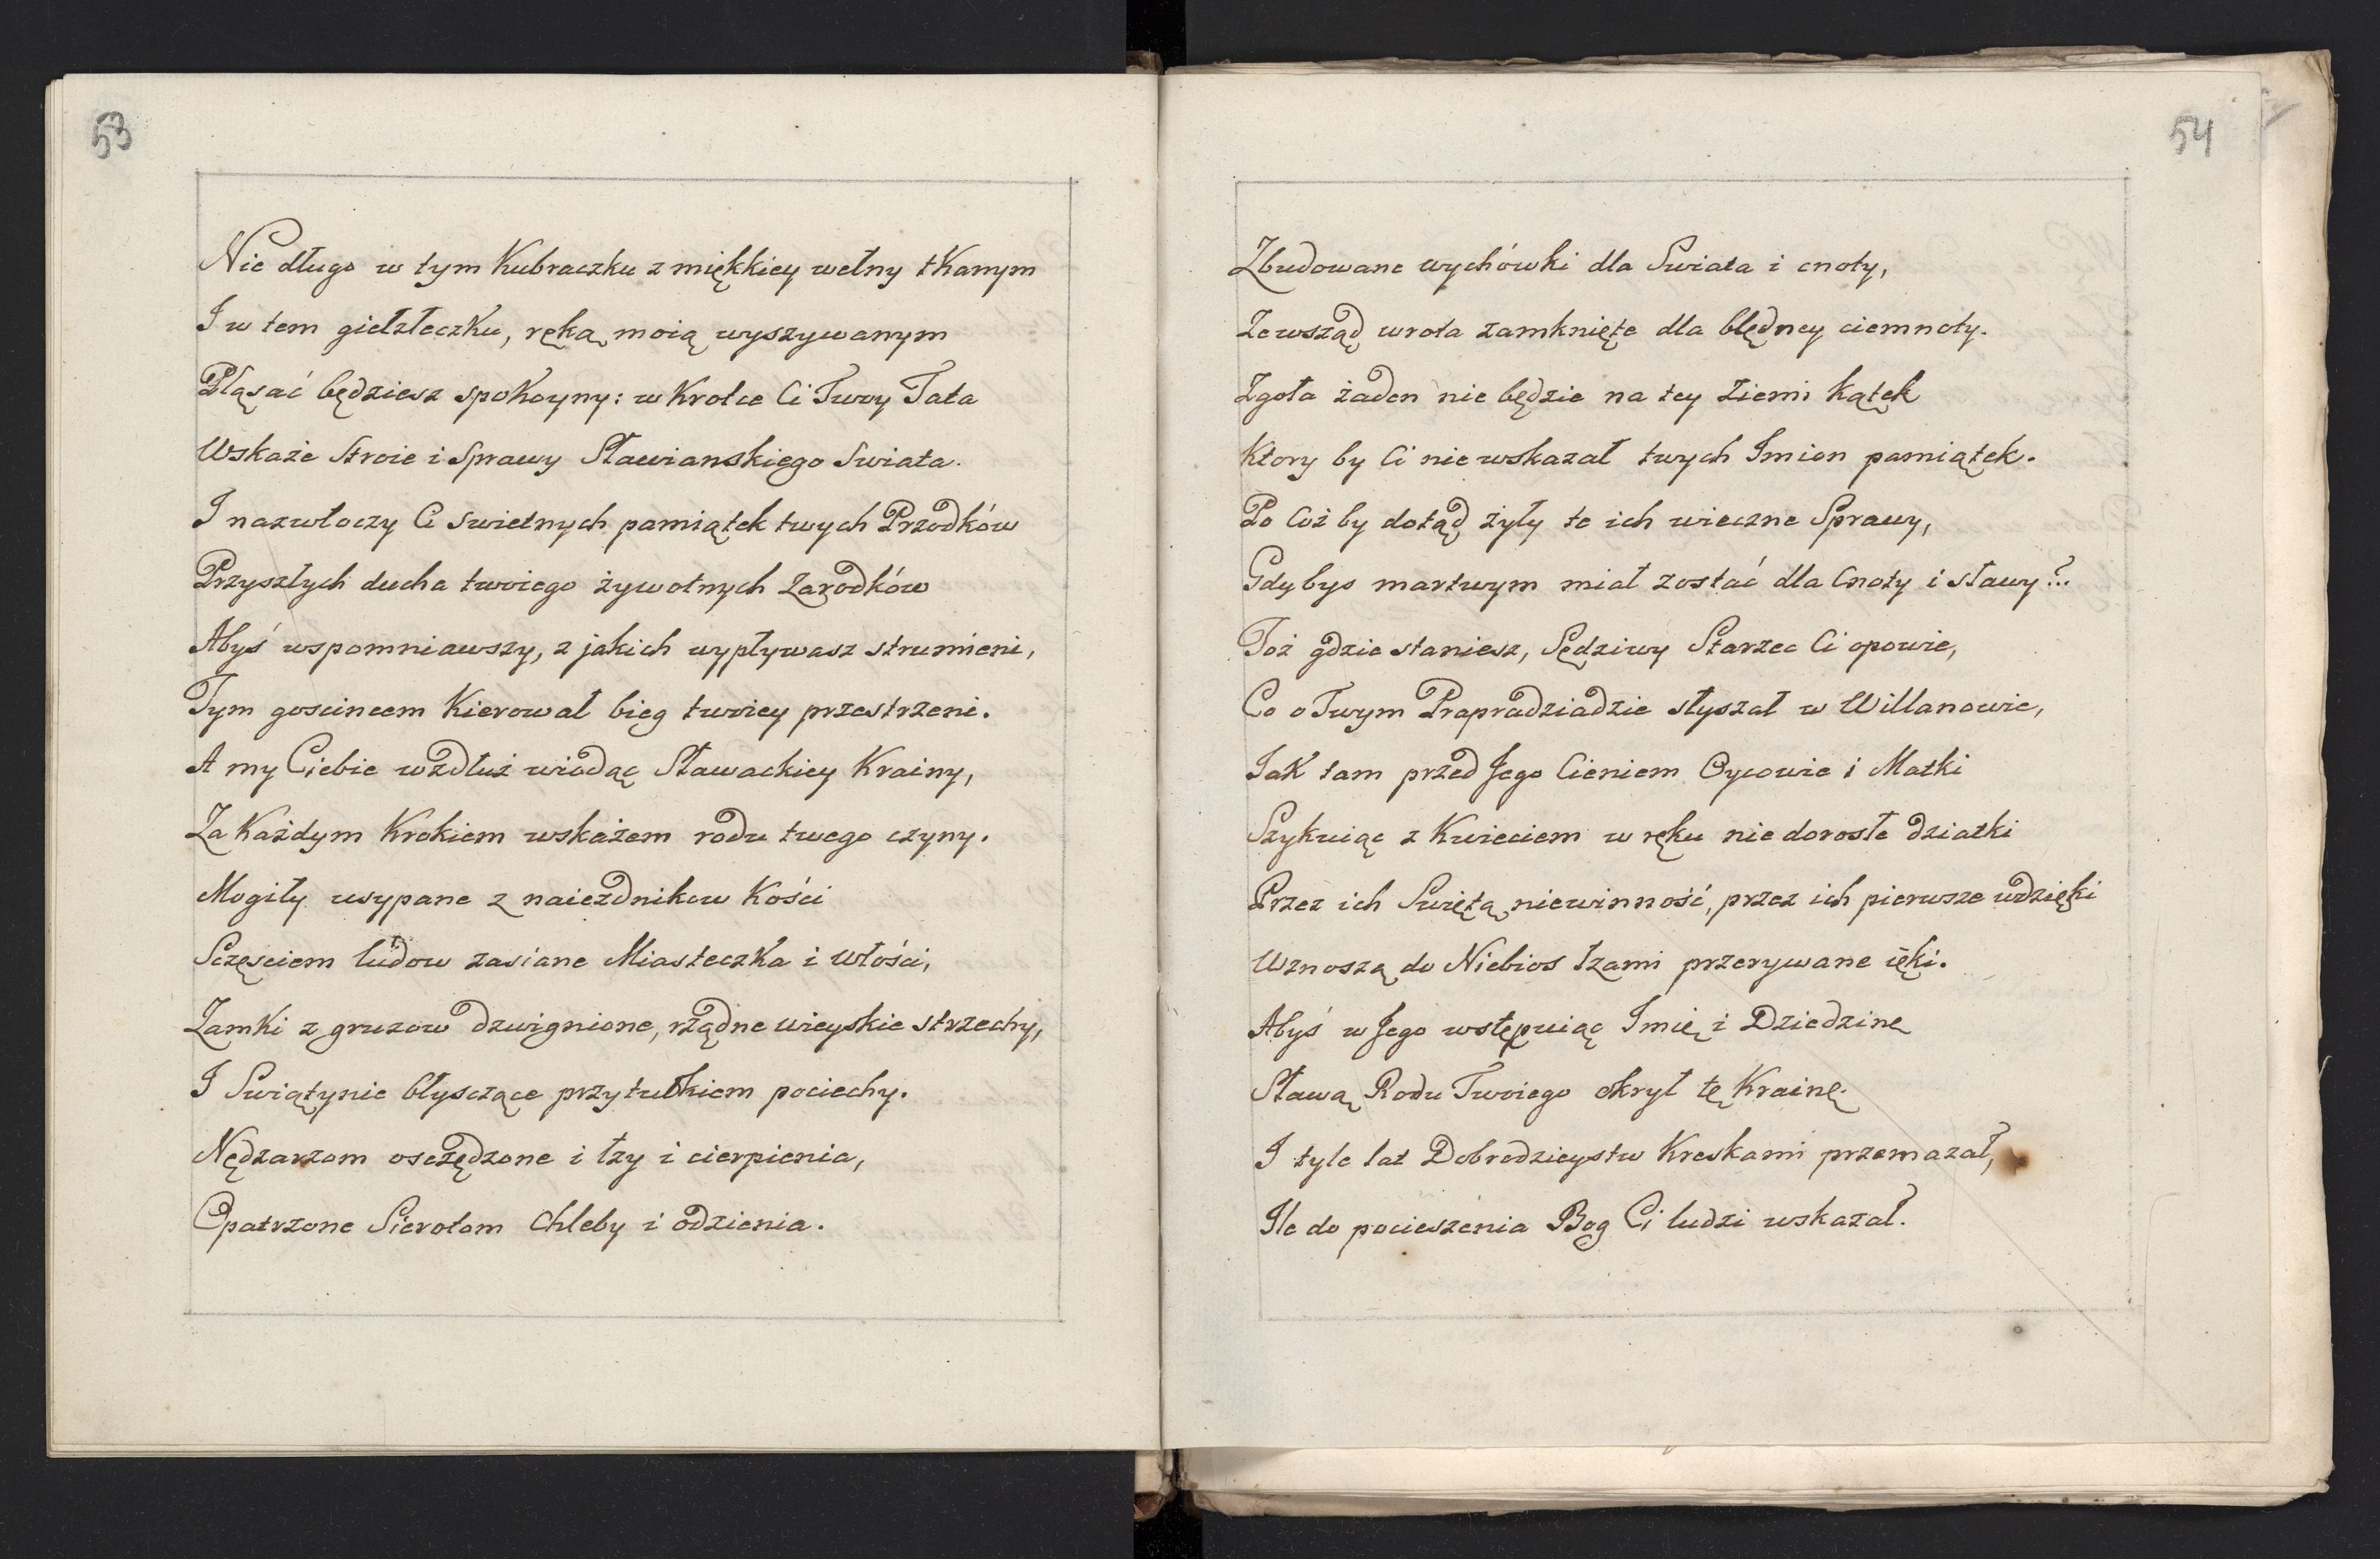 53
Nie długo w tym Kubraczku z miękkiey wełny tkanym
I w tem giełzłeczku, ręką moią wyszywanym
Pląsać będziesz spokoyny: w krotce Ci Twoy Tata
Wskaże Stroie i Sprawy Sławianskiego Swiata.
I nazwłoczy Ci swietnych pamiątek twych Przodków
Przyszłych ducha twoiego żywotnych Zarodków
Abyś wspomniawszy, z jakich wypływasz strumieni,
Tym goscincem Kierował bieg twoiey przestrzeni.
A my Ciebie wzdłuż wiodąc Sławackiey Krainy,
Za Każdym Krokiem wskażem rodu twego czyny.
Mogiły usypane z naiezdnikow Kości
Sczęsciem ludow zasiane Miasteczka i włości,
Zamki z gruzow dzwignione, rządne wieyskie strzechy,
I Swiątynie błysczące przytułkiem pociechy.
Nędzarzom osczędzone i łzy i cierpienia,
Opatrzone Sierotom Chleby i odzienia.
54
Zbudowane wychówki dla Swiata i cnoty,
Zewsząd wrota zamknięte dla błędney ciemnoty.
Zgoła żaden nie będzie na tey Ziemi kątek
Ktory by Ci nie wskazał twych Imion pamiątek.
Po Coż by dotąd żyły te ich wieczne Sprawy,
Gdybys martwym miał zostać dla Cnoty i sławy?..
Toż gdzie staniesz, Sędziwy Starzec Ci opowie,
Co o Twym Prapradziadzie słyszał w Willanowie,
Jak tam przed Jego Cieniem Oycowie i Matki
Szykuiąc z Kwieciem w ręku nie dorosłe dziatki
Przez ich Swiętą niewinność, przez ich pierwsze wdzięki
Wznoszą do Niebios łzami przerywane ięki.
Abyś w Jego wstępuiąc Imię i Dziedzinę
Sławą Rodu Twoiego okrył tę Krainę.
I tyle lat Dobrodzieystw Kreskami przemazał,
Ile do pocieszenia Bog Ci ludzi wskazał.